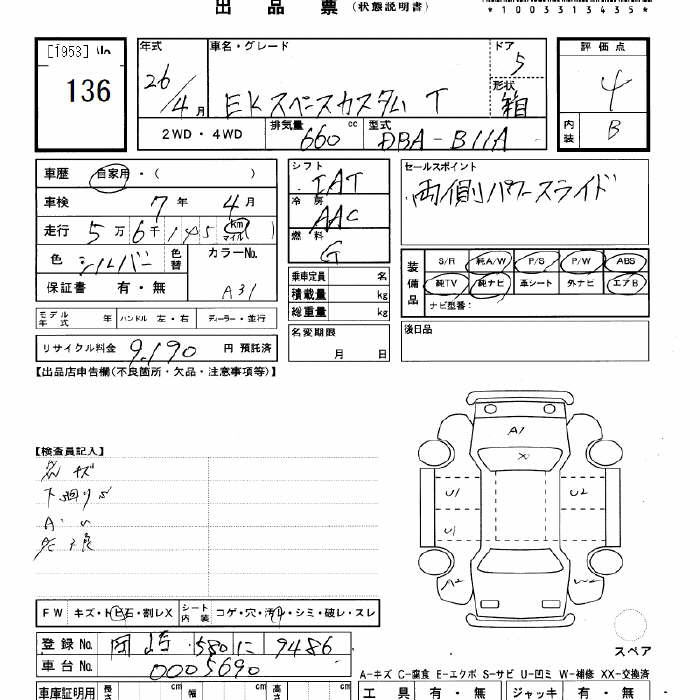 出品票（状態説明書）
*1003313435*
[1953]
136
年式 26/4月
車名・グレード EKスペースカスタム T
ドア 5
形状 箱
2WD・4WD
排気量 660 cc
型式 DBA-B11A
評価点 4
内装 B
車歴 自家用・( )
車検 7年 4月
走行 5万6千145 (km マイル)
色 シルバー 色替
カラーNo. A31
保証書 有・無
シフト IAT
冷房 AAC
燃料 G
セールスポイント
両側パワースライド
装備品
S/R 純A/W P/S P/W ABS
純TV 純ナビ 革シート 外ナビ エアB
ナビ型番：
乗車定員 名
積載量 kg
総重量 kg
モデル年式 年 ハンドル 左・右 ディーラー・並行
名変期限 月 日
後日品
リサイクル料金 9,190 円 預託済
【出品店申告欄(不良箇所・欠品・注意事項等)】
【検査員記入】
A1
X
U1 U2
U1
A2 W2
スペア
FW キズ・トビ石・割レX シート内装 コゲ・穴・汚レ・シミ・破レ・スレ
登録No. 岡崎 580 に 9486
車台No. 0005690
A-キズ C-腐食 E-エクボ S-サビ U-凹ミ W-補修 XX-交換済
車庫証明用 長さ cm 幅 cm 高さ cm
工具 有・無 ジャッキ 有・無